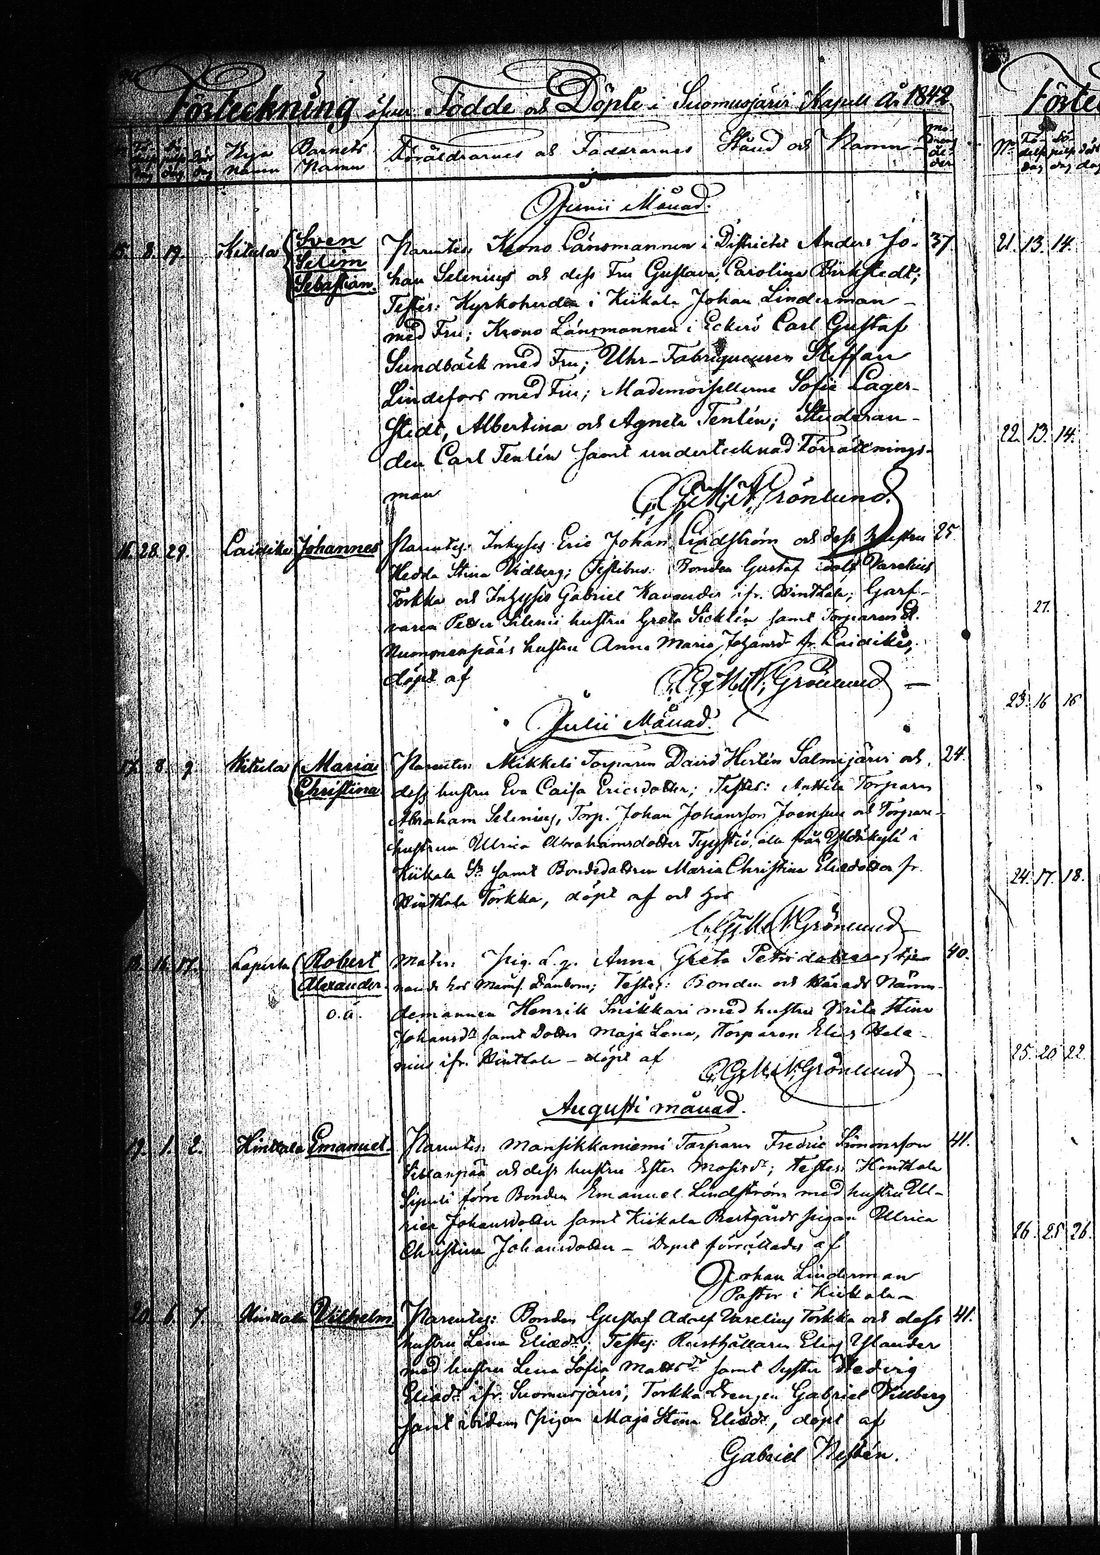 Förteckning öfver Födde och Döpte i Suomusjärvi Kapell År 1842
Förte
No Fö- delse dag Dö- pelse dag Byns namn Barnets Namn Föräldrarnes och Faddrarnes Stånd och Namn Modrens ålder
Junii Månad.
15. 8. 19. Kitula Sven Selim Sebastian. Parentes: Krono Länsmannen i Districtet Anders Jo- 37.
han Selenius och dess Fru Gustava Carolina Birkstedt;
Testes: Kyrkoherden i Kiikala Johan Linderman
med Fru; Krono Länsmannen i Eckerö Carl Gustaf
Sundbäck med Fru; Uhr-Fabriqueuren Steffan
Lindefors med Fru; Mademoisellerne Sofie Lager-
stedt, Albertina och Agneta Tenlén; Studeran-
den Carl Tenlén samt undertecknad Förrättnings-
man
Grönlund.
16. 28. 29. Laidike Johannes Parentes: Inhyses Eric Johan Lindström och dess hustru 25.
Hedda Stina Vidberg; Testibus: Bonden Gustaf Adolf Varelius
Torkka och Inhyses Gabriel Kavander ifr. Hintala; Garf-
varen Petter Silenii hustru Greta Sicklén samt Torparen
hustru Anna Maria Johansd:r fr. Laidike,
döpt af
Grönlund
Julii Månad.
17. 8. 9. Kitula Maria Christina Parentes: Mikkeli Torparen David Hertén Salmijärvi och 24.
dess hustru Eva Caisa Ericsdotter; Testes: Anttila Torparen
Abraham Selenius, Torp. Johan Johansson Joensuu och Torpare-
hustrun Ulrica Abrahamsdotter alla från i
Kiikala Sn samt Bondedottren Maria Christina Eliædotter fr.
Hintala Torkka, döpt af och hos
Grönlund
18. 16. 17. Laperla Robert Alexander o. ä. Mater: Pig. L. g. Anna Greta Petersdotter, tje- 40.
nande hos Mamsell Danbom; Testes: Bonden och Härads Näm-
demannen Henrik Snikkari med hustru Stina
Johansd:r samt Dotter Maja Lena, Torparen Elias Hele-
nius ifr. Hintala - döpt af
Grönlund
Augusti månad.
19. 1. 2. Hintala Emanuel. Parentes: Mansikkaniemi Torparen Fredric Simonsson 41.
och dess hustru Ester Mosisd:r; Testes: Hintala
Sipilä förre Bonden Emanuel Lindström med hustru Ul-
rica Johansdotter samt Kiikala Prestgårds pigan Ulrica
Christina Johansdotter - Dopet förrättades af
Johan Linderman
Pastor i Kiikala
20. 6. 7. Hintala Vilhelm Parentes: Bonden Gustaf Adolf Varelius Torkka och dess 41.
hustru Lena Eliæd:r; Testes: Rusthållaren Elias Ylander
med hustru Lena Sofia Mattsd:r samt Syster Hedvig
Eliæd:r ifr. Suomusjärvi, Torkka Drengen Gabriel Vidberg
samt ibidem Pigan Maja Stina Eliæd:r, döpt af
Gabriel Hestén.
21. 13. 14.
22. 13. 14.
27.
23. 16 16
24. 17. 18.
25. 20 22.
26. 25 26.